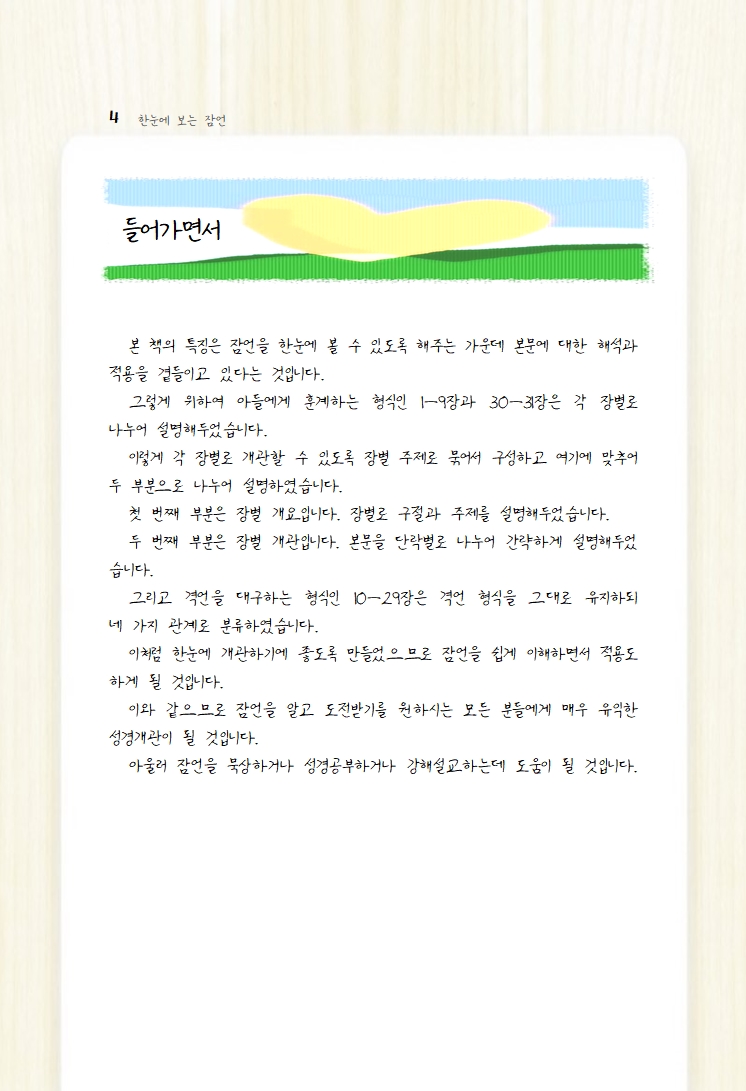 4 한눈에 보는 잠언
들어가면서
본 책의 특징은 잠언을 한눈에 볼 수 있도록 해주는 가운데 본문에 대한 해석과
적용을 곁들이고 있다는 것입니다.
그렇게 위하여 아들에게 훈계하는 형식인 1-9장과 30-31장은 각 장별로
나누어 설명해두었습니다.
이렇게 각 장별로 개관할 수 있도록 장별 주제로 묶어서 구성하고 여기에 맞추어
두 부분으로 나누어 설명하였습니다.
첫 번째 부분은 장별 개요입니다. 장별로 구절과 주제를 설명해두었습니다.
두 번째 부분은 장별 개관입니다. 본문을 단락별로 나누어 간략하게 설명해두었
습니다.
그리고 격언을 대구하는 형식인 10-29장은 격언 형식을 그대로 유지하되
네 가지 관계로 분류하였습니다.
이처럼 한눈에 개관하기에 좋도록 만들었으므로 잠언을 쉽게 이해하면서 적용도
하게 될 것입니다.
이와 같으므로 잠언을 알고 도전받기를 원하시는 모든 분들에게 매우 유익한
성경개관이 될 것입니다.
아울러 잠언을 묵상하거나 성경공부하거나 강해설교하는데 도움이 될 것입니다.